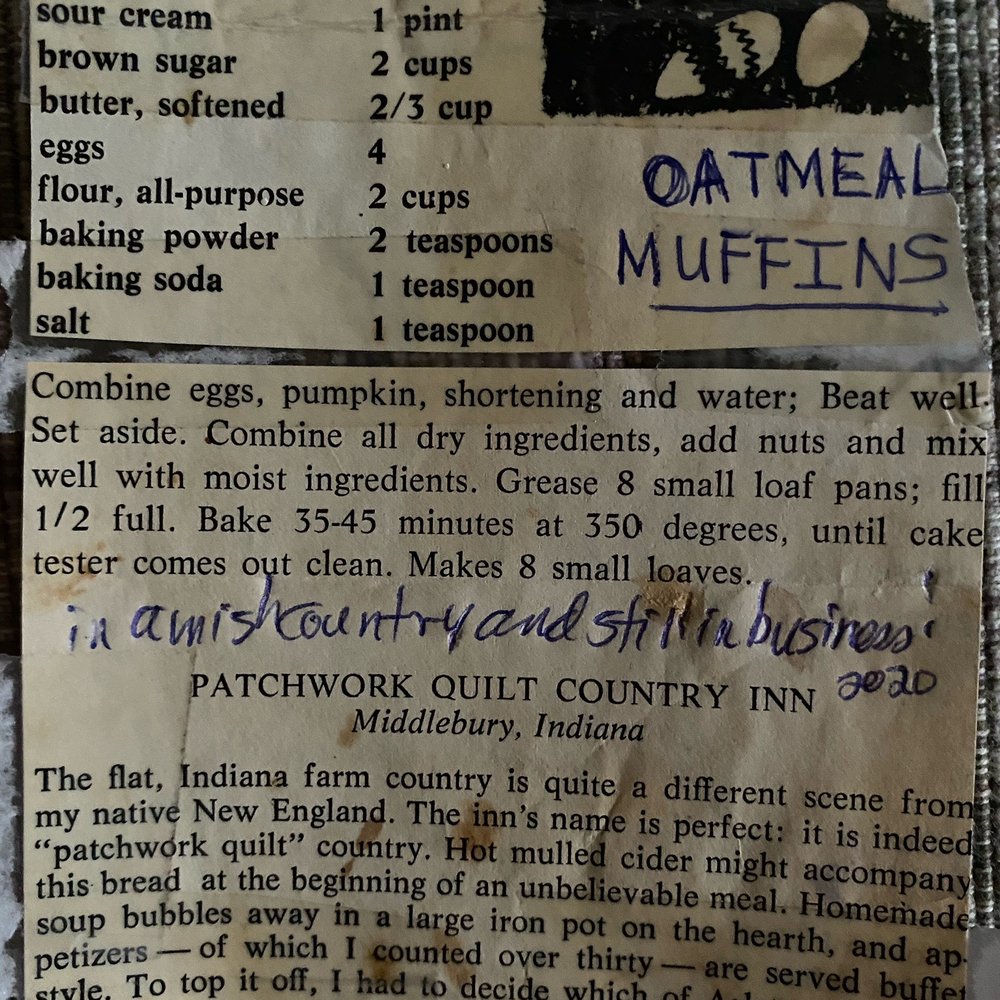 sour cream 1 pint
brown sugar 2 cups
butter, softened 2/3 cup
eggs 4
flour, all-purpose 2 cups
baking powder 2 teaspoons
baking soda 1 teaspoon
salt 1 teaspoon
OATMEAL
MUFFINS
Combine eggs, pumpkin, shortening and water; Beat well.
Set aside. Combine all dry ingredients, add nuts and mix
well with moist ingredients. Grease 8 small loaf pans; fill
1/2 full. Bake 35-45 minutes at 350 degrees, until cake
tester comes out clean. Makes 8 small loaves.
in amish country and still in business!
2020
PATCHWORK QUILT COUNTRY INN
Middlebury, Indiana
The flat, Indiana farm country is quite a different scene from
my native New England. The inn's name is perfect: it is indeed
"patchwork quilt" country. Hot mulled cider might accompany
this bread at the beginning of an unbelievable meal. Homemade
soup bubbles away in a large iron pot on the hearth, and ap-
petizers — of which I counted over thirty — are served buffet
style. To top it off, I had to decide which of